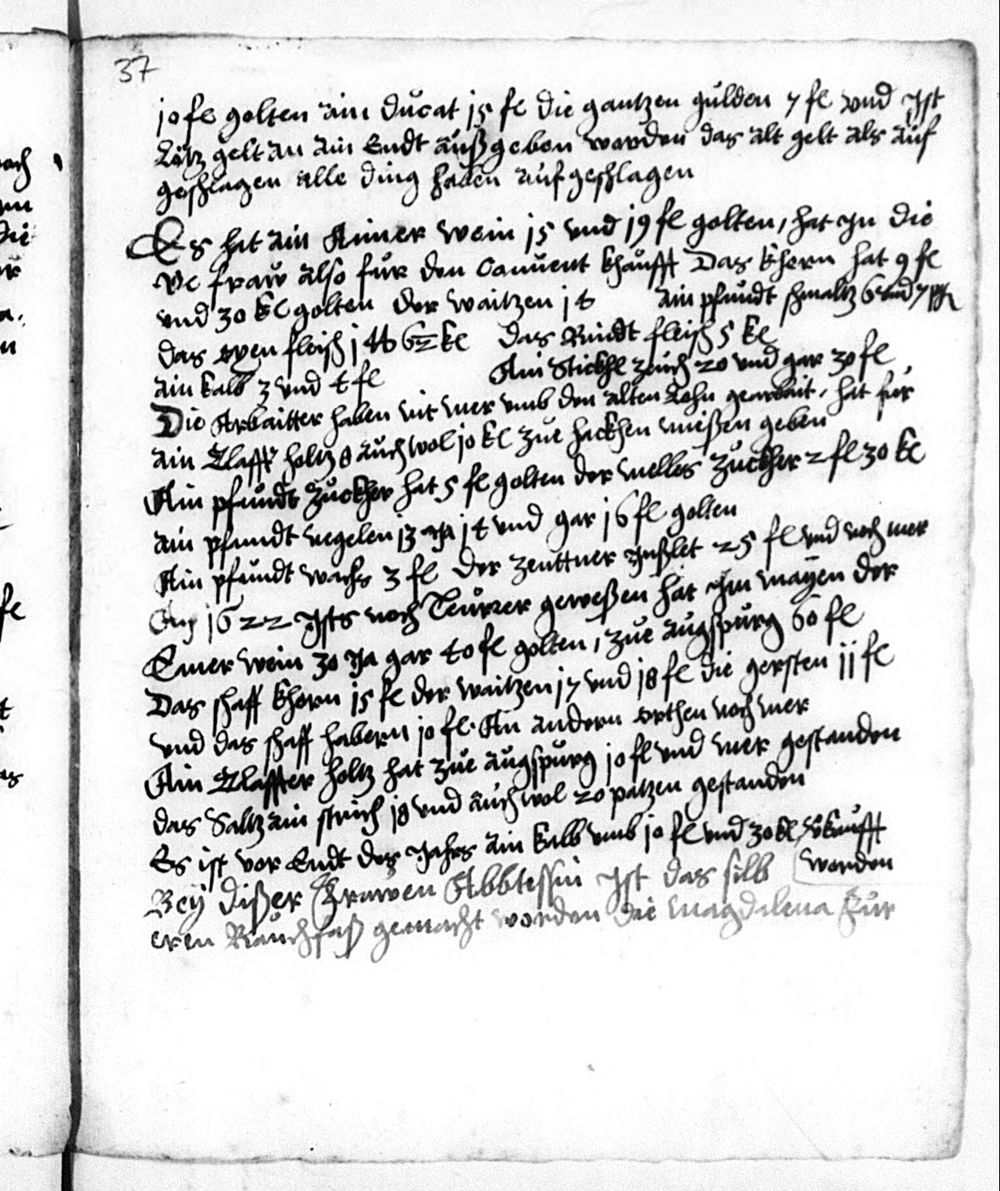 37
10 fl golten ain ducat 15 fl die gantzen gulden 7 fl vnd Ist
gelt an ain Endt außgeben worden das alt gelt als auf
geschlagen alle ding haben aufgeschlagen
Es hat ain Aimer wein 15 vnd 19 fl golten, hat In die
fraw also für den Conuent khaufft Das khorn hat 9 fl
vnd 30 kl golten der waitzen 14 ain pfundt schmaltz 6 vnd 7
das oxen fleisch 1 lb 6 kl das Rindt fleisch 5 kl
ain kalb 3 vnd 4 fl Ain Stickhl 20 vnd gar 30 fl
Die Arbaitter haben nit mer vmb den alten Lohn gearbait, hat für
ain Klaffter holtz 8 auch wol 10 kl zue hackhen mießen geben
Ain pfundt Zuckher hat 5 fl golten der melles Zuckher 2 fl 30 kl
ain pfundt negelen 13 Ja 14 vnd gar 16 fl golten
Ain pfundt wachs 3 fl Der Zenttner Inßlet 25 fl vnd noch mer
1622 Ists noch Teurrer geweßen hat Im mayen der
Emer wein 30 Ja gar 40 fl golten, zue augspurg 60 fl
Das schaff khorn 15 fl der waitzen 17 vnd 18 fl die gersten 11 fl
vnd das schaff habern 10 fl. An andern orthen noch mer
Ain Klaffter holtz hat zue augspurg 10 fl vnd mer gestanden
das Saltz ain 18 vnd auch wol 20 patzen gestanden
Es ist vor Endt des Jahrs ain kalb vmb 10 fl vnd 30 kl verkaufft
worden
Bey dißer Frawen Abbtessin Ist das silb
eren Rauchfaß gemacht worden die Magdalena Für